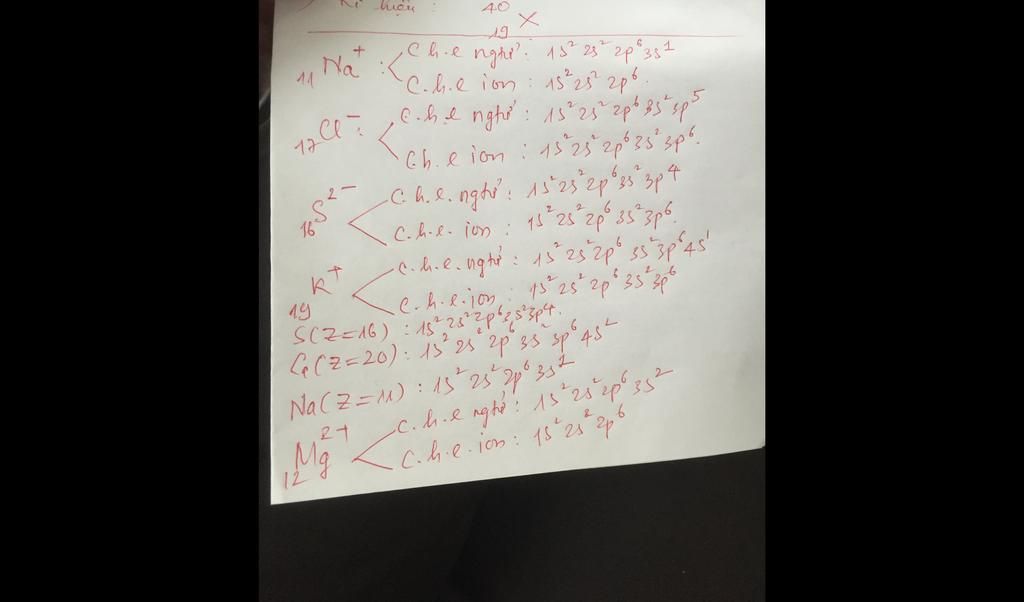 Kí hiệu : 40
19 X
11 Na⁺ : C.h.e ngtử : 1s² 2s² 2p⁶ 3s¹
C.h.e ion : 1s² 2s² 2p⁶.
17 Cl⁻ : C.h.e ngtử : 1s² 2s² 2p⁶ 3s² 3p⁵
C.h.e ion : 1s² 2s² 2p⁶ 3s² 3p⁶.
16 S²⁻ C.h.e. ngtử : 1s² 2s² 2p⁶ 3s² 3p⁴
C.h.e. ion : 1s² 2s² 2p⁶ 3s² 3p⁶.
19 K⁺ C.h.e. ngtử : 1s² 2s² 2p⁶ 3s² 3p⁶ 4s¹
C.h.e. ion : 1s² 2s² 2p⁶ 3s² 3p⁶
S(Z=16) : 1s² 2s² 2p⁶ 3s² 3p⁴.
(Z=20) : 1s² 2s² 2p⁶ 3s² 3p⁶ 4s²
Na(Z=11) : 1s² 2s² 2p⁶ 3s¹
12 Mg²⁺ C.h.e ngtử : 1s² 2s² 2p⁶ 3s²
C.h.e. ion : 1s² 2s² 2p⁶